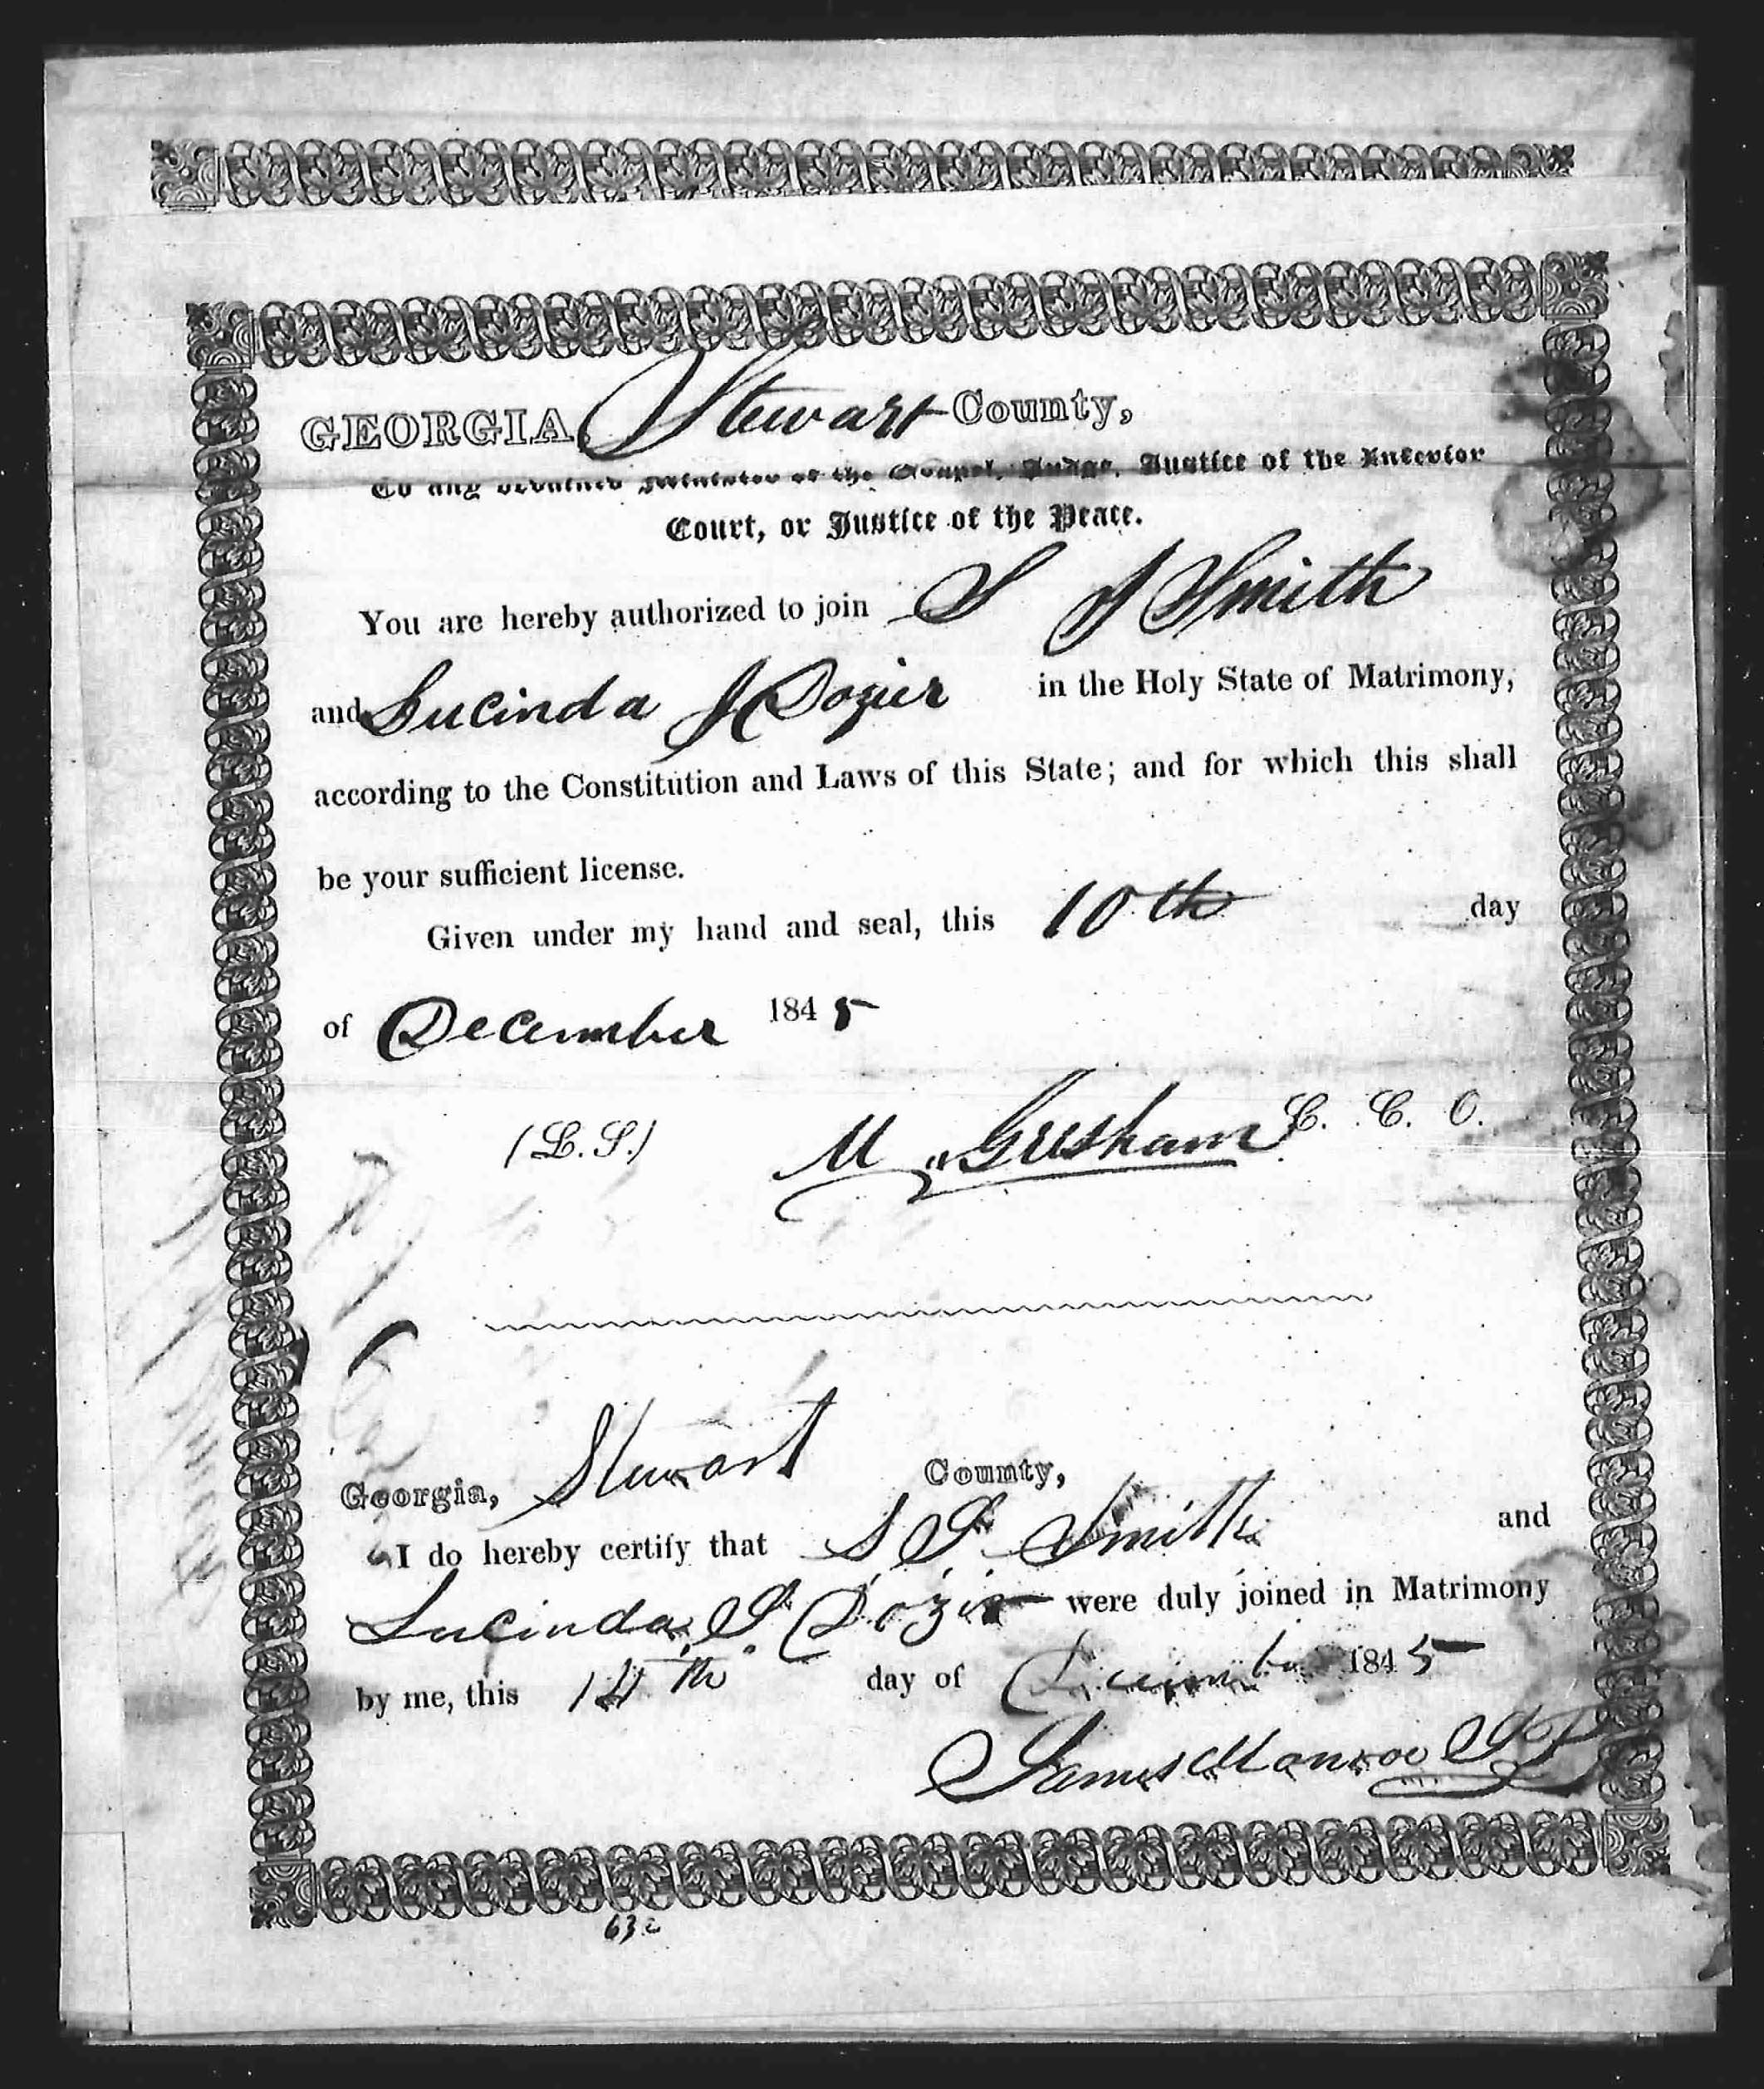 GEORGIA, Stewart County,
To any ordained Minister of the Gospel, Judge, Justice of the Inferior
Court, or Justice of the Peace.
You are hereby authorized to join S J Smith
and Lucinda J Dozier in the Holy State of Matrimony,
according to the Constitution and Laws of this State; and for which this shall
be your sufficient license.
Given under my hand and seal, this 10th day
of December 1845
(L.S.) M Gresham C. C. O.
Georgia, Stewart County,
I do hereby certify that S J Smith and
Lucinda J Dozier were duly joined in Matrimony
by me, this 14th day of December 1845
James Monroe JP